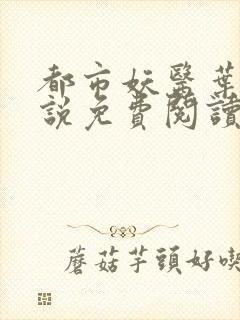 都市妖醫葉
說免費閱讀
蘑菇芋頭好喫